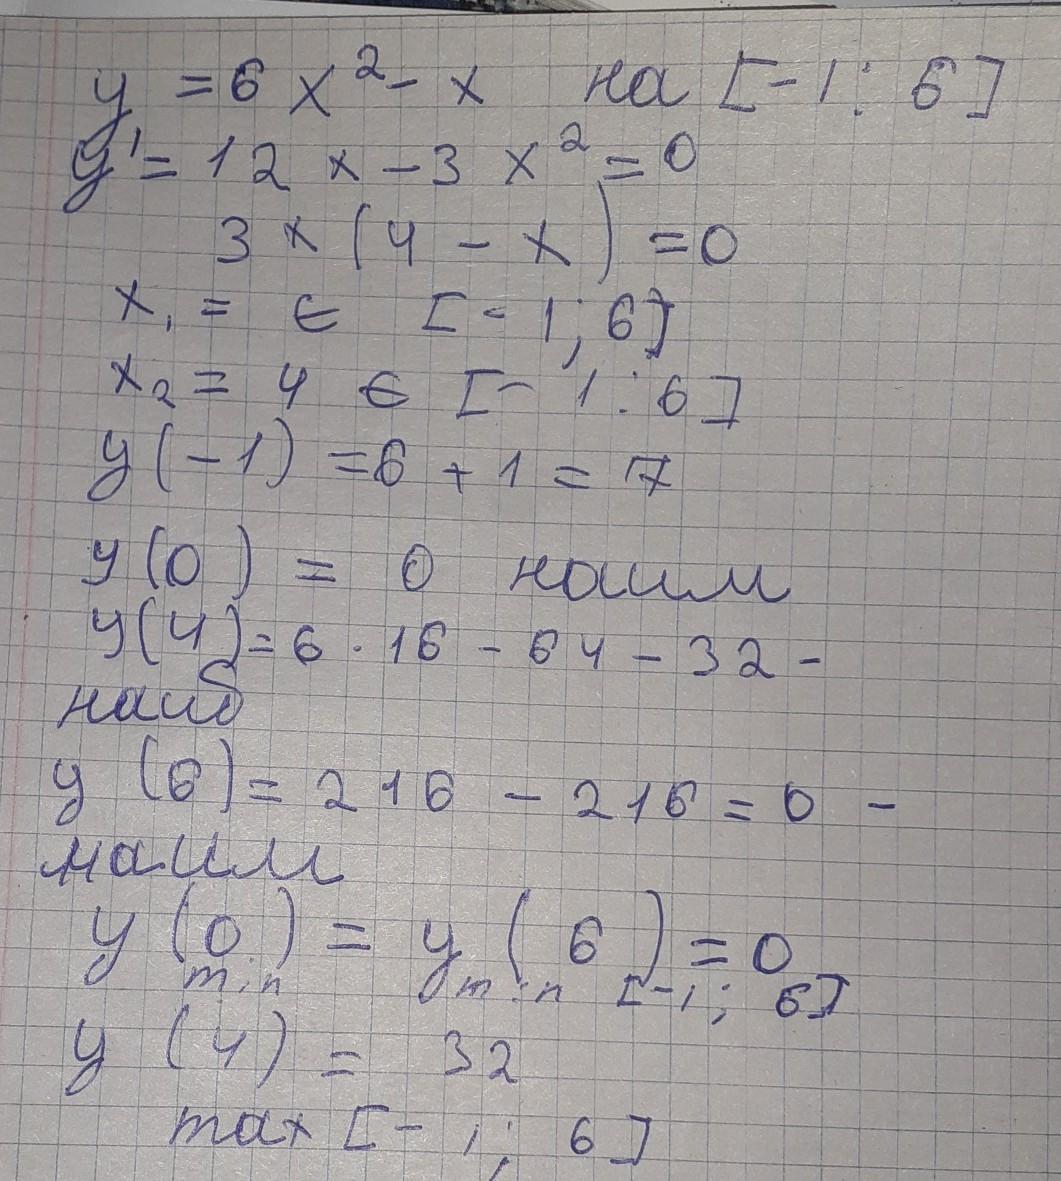 y = 6x² - x на [-1 : 6]
y' = 12x - 3x² = 0
3x(4 - x) = 0
x₁ = ∈ [-1; 6]
x₂ = 4 ∈ [-1 : 6]
y(-1) = 6 + 1 = 7
y(0) = 0 наим
y(4) = 6 · 16 - 64 - 32 -
наиб
y(6) = 216 - 216 = 0 -
наим
y(0) = y(6) = 0
min min [-1; 6]
y(4) = 32
max [-1; 6]